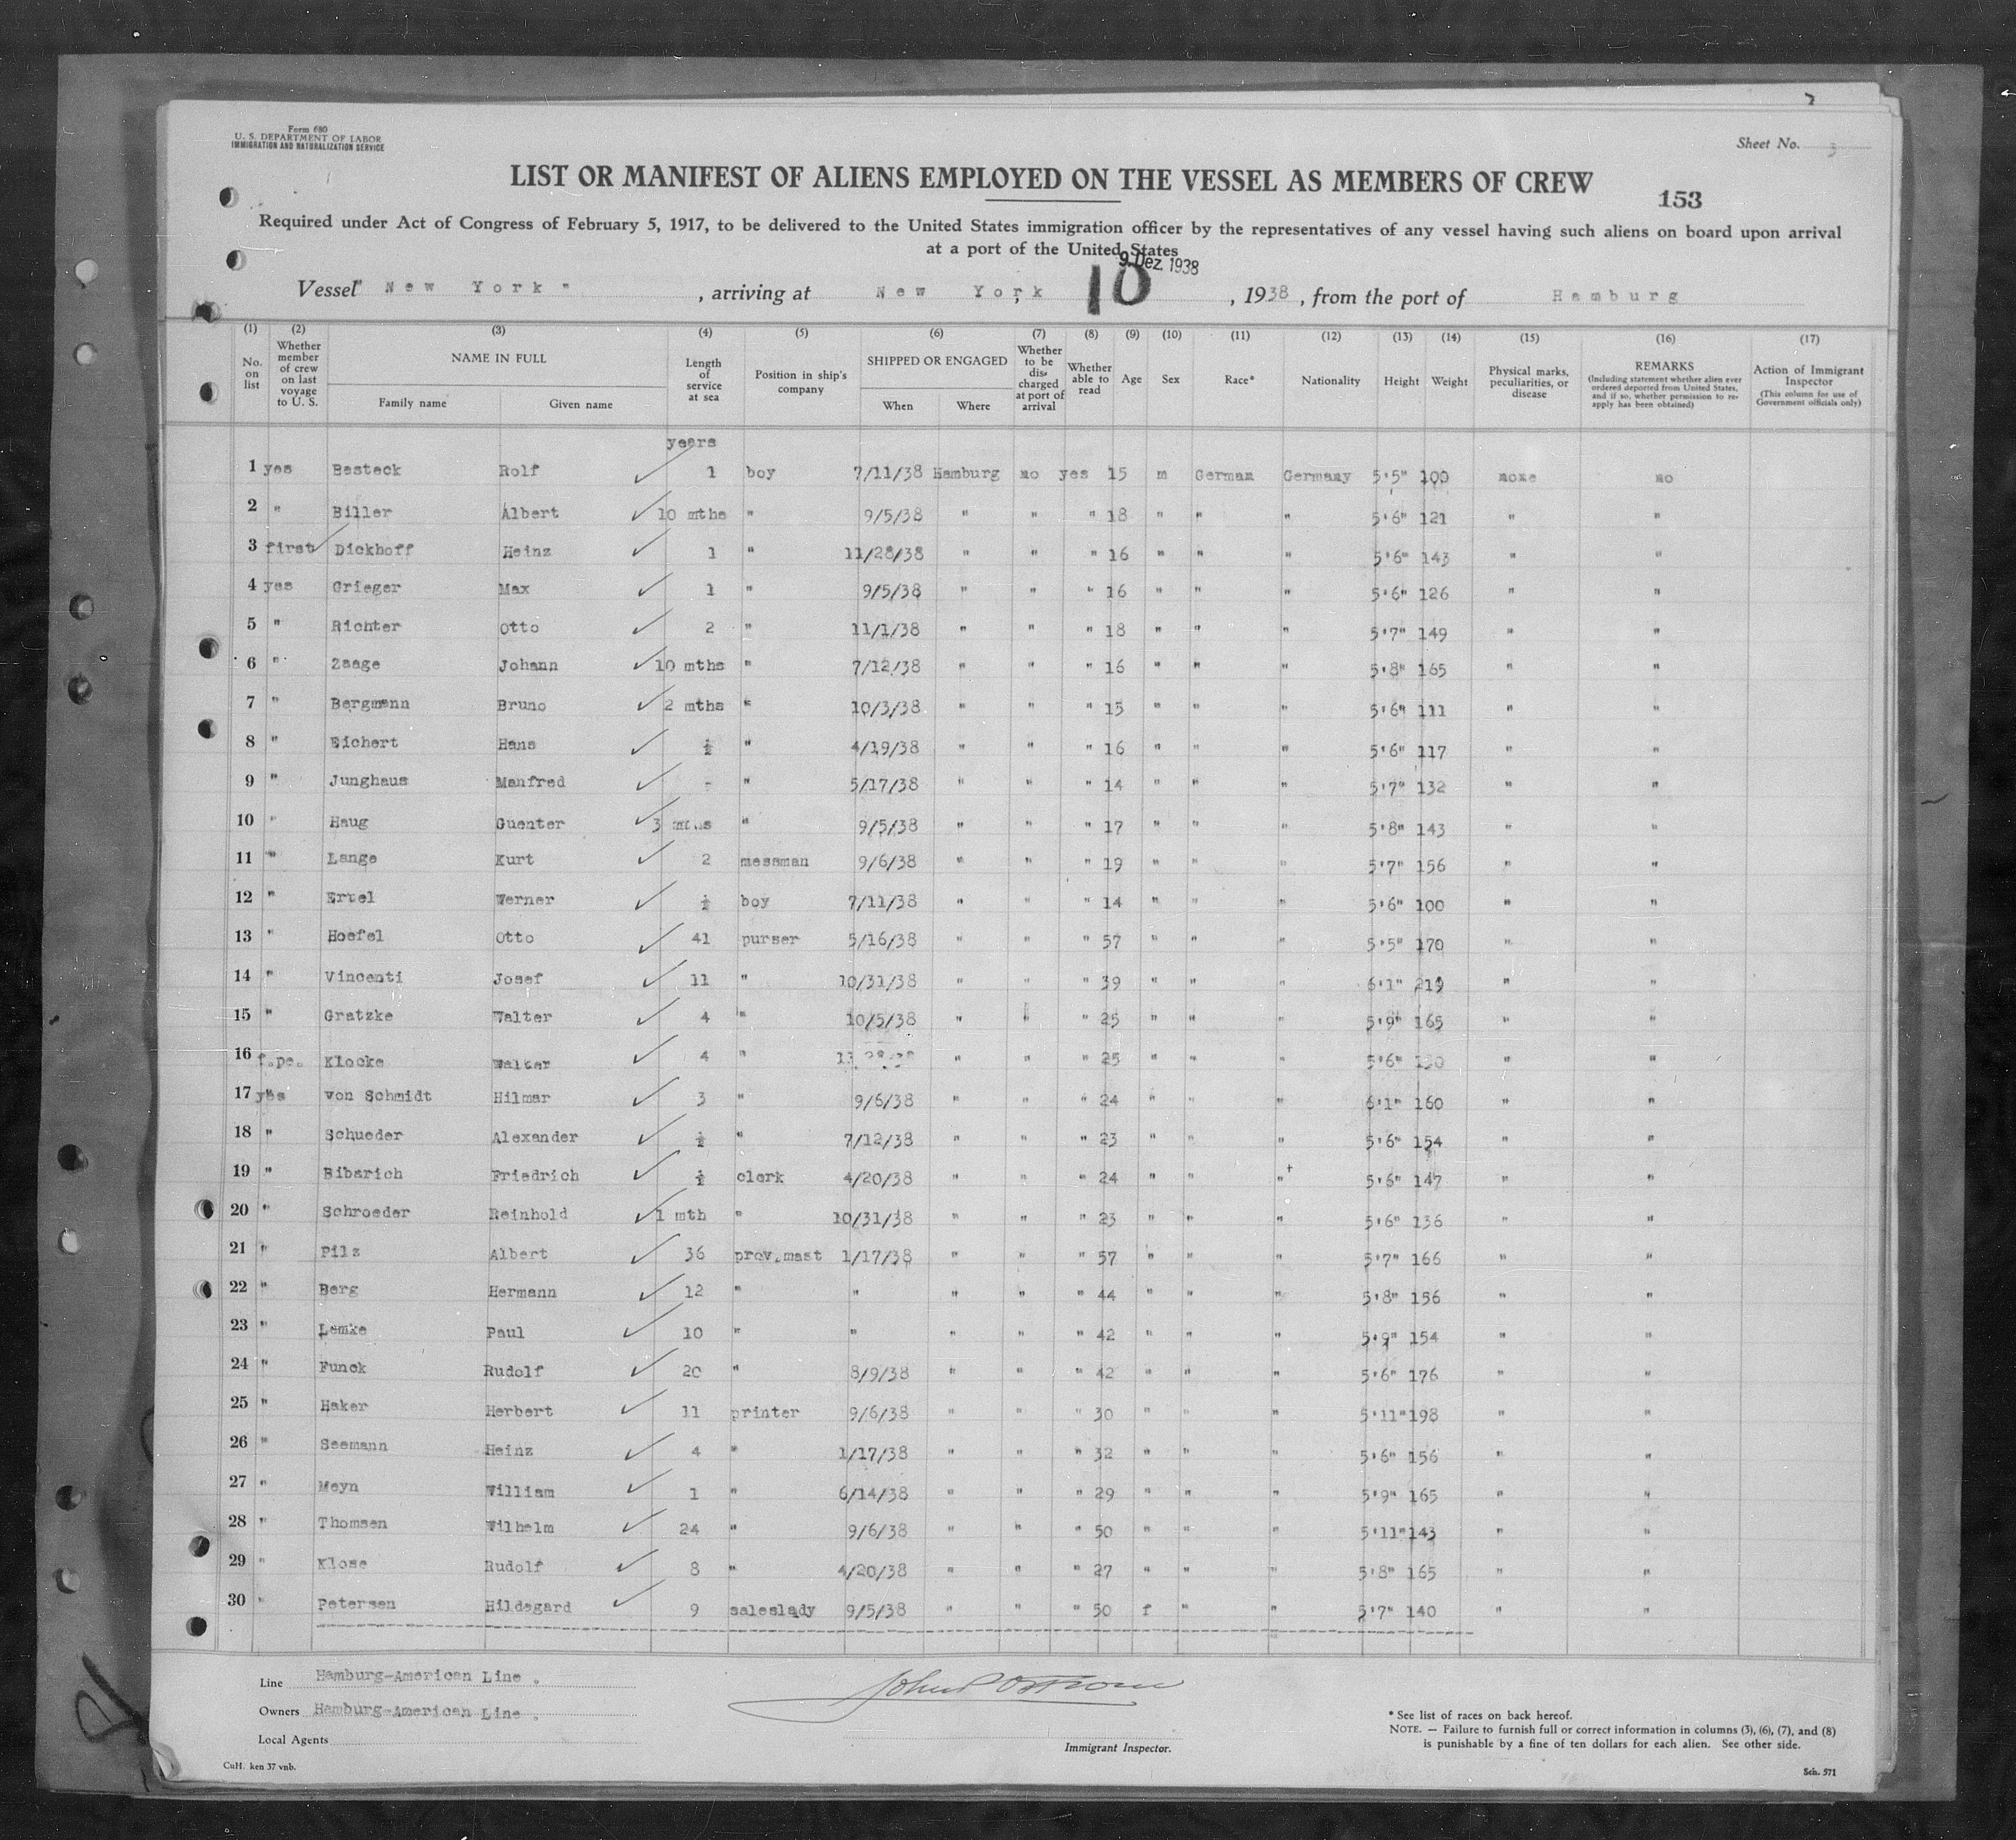 Form 680
U. S. DEPARTMENT OF LABOR
IMMIGRATION AND NATURALIZATION SERVICE
Sheet No. 3
LIST OR MANIFEST OF ALIENS EMPLOYED ON THE VESSEL AS MEMBERS OF CREW
153
Required under Act of Congress of February 5, 1917, to be delivered to the United States immigration officer by the representatives of any vessel having such aliens on board upon arrival
at a port of the United States
9. Dez. 1938
Vessel "New York", arriving at New York, 10, 1938, from the port of Hamburg
(1) (2) (3) (4) (5) (6) (7) (8) (9) (10) (11) (12) (13) (14) (15) (16) (17)
No. on list
Whether member of crew on last voyage to U. S.
NAME IN FULL
Family name Given name
Length of service at sea
Position in ship's company
SHIPPED OR ENGAGED
When Where
Whether to be discharged at port of arrival
Whether able to read
Age Sex Race* Nationality Height Weight
Physical marks, peculiarities, or disease
REMARKS
(Including statement whether alien ever ordered deported from United States, and if so, whether permission to reapply has been obtained)
Action of Immigrant Inspector
(This column for use of Government officials only)
years
1 yes Besteck Rolf 1 boy 7/11/38 Hamburg no yes 15 m German Germany 5'5" 100 none no
2 " Biller Albert 10 mths " 9/5/38 " " " 18 " " " 5'6" 121 " "
3 first Dickhoff Heinz 1 " 11/28/38 " " " 16 " " " 5'6" 143 " "
4 yes Grieger Max 1 " 9/5/38 " " " 16 " " " 5'6" 126 " "
5 " Richter Otto 2 " 11/1/38 " " " 18 " " " 5'7" 149 " "
6 " Zaage Johann 10 mths " 7/12/38 " " " 16 " " " 5'8" 165 " "
7 " Bergmann Bruno 2 mths " 10/3/38 " " " 15 " " " 5'6" 111 " "
8 " Eichert Hans ½ " 4/19/38 " " " 16 " " " 5'6" 117 " "
9 " Junghaus Manfred - " 5/17/38 " " " 14 " " " 5'7" 132 " "
10 " Haug Guenter 3 mths " 9/5/38 " " " 17 " " " 5'8" 143 " "
11 " Lange Kurt 2 messman 9/6/38 " " " 19 " " " 5'7" 156 " "
12 " Ertel Werner ½ boy 7/11/38 " " " 14 " " " 5'6" 100 " "
13 " Hoefel Otto 41 purser 5/16/38 " " " 57 " " " 5'5" 170 " "
14 " Vincenti Josef 11 " 10/31/38 " " " 39 " " " 6'1" 219 " "
15 " Gratzke Walter 4 " 10/5/38 " " " 25 " " " 5'9" 165 " "
16 Klocke Walter 4 " " " " 25 " " " 5'6" " "
17 yes von Schmidt Hilmar 3 " 9/6/38 " " " 24 " " " 6'1" 160 " "
18 " Schueder Alexander ½ " 7/12/38 " " " 23 " " " 5'6" 154 " "
19 " Bibarich Friedrich ½ clerk 4/20/38 " " " 24 " " " 5'6" 147 " "
20 " Schroeder Reinhold 1 mth " 10/31/38 " " " 23 " " " 5'6" 136 " "
21 " Pilz Albert 36 prov.mast 1/17/38 " " " 57 " " " 5'7" 166 " "
22 " Berg Hermann 12 " " " " " 44 " " " 5'8" 156 " "
23 " Lemke Paul 10 " " " " " 42 " " " 5'9" 154 " "
24 " Funck Rudolf 20 " 8/9/38 " " " 42 " " " 5'6" 176 " "
25 " Haker Herbert 11 printer 9/6/38 " " " 30 " " " 5'11" 198 " "
26 " Seemann Heinz 4 " 1/17/38 " " " 32 " " " 5'6" 156 " "
27 " Meyn William 1 " 6/14/38 " " " 29 " " " 5'9" 165 " "
28 " Thomsen Wilhelm 24 " 9/6/38 " " " 50 " " " 5'11" 143 " "
29 " Klose Rudolf 8 " 4/20/38 " " " 27 " " " 5'8" 165 " "
30 " Petersen Hildegard 9 saleslady 9/5/38 " " " 50 f " " 5'7" 140 " "
Line Hamburg-American Line.
Owners Hamburg-American Line.
Local Agents
Immigrant Inspector.
* See list of races on back hereof.
NOTE. — Failure to furnish full or correct information in columns (3), (6), (7), and (8)
is punishable by a fine of ten dollars for each alien. See other side.
CuH. ken 37 vnb.
Sch. 571